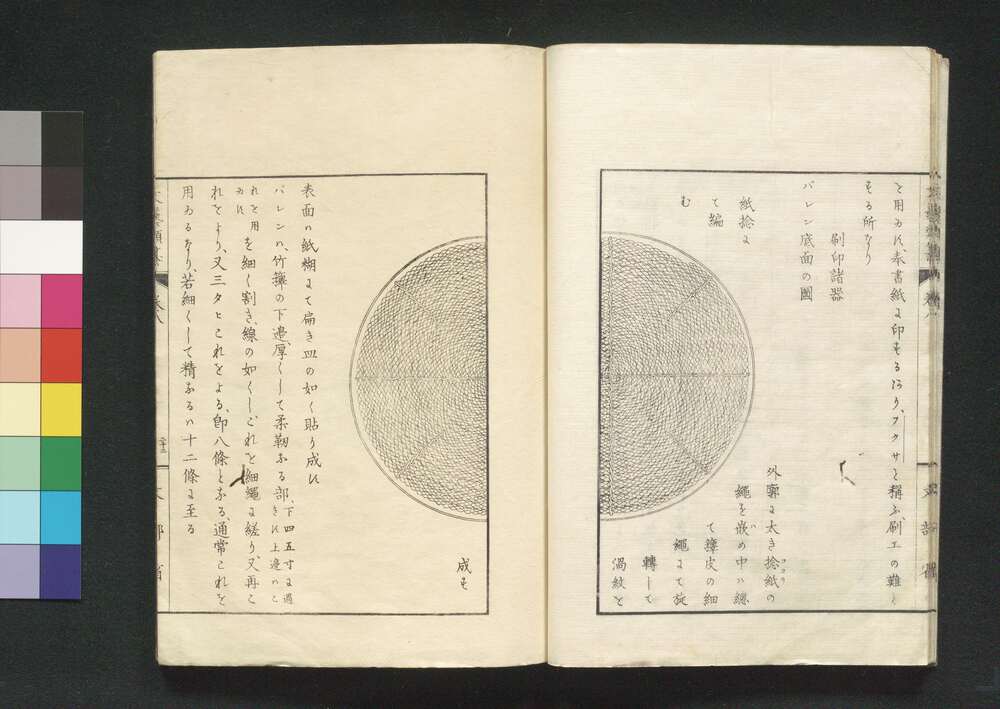 を用ゐ此奉書紙に印するにあり、フクサと稱ふ、刷工の難と
する所なり
刷印諸器
バレン底面の圖
紙捻に
て編
む
外廓は大き捻紙の
繩を嵌め中ハ總
て籜皮の細
繩まて旋
轉して
渦紋と
成す
表面ハ紙糊まて扁き皿の如く貼り成ひ
バレンハ、竹籜の下邉、厚くして柔靭なる部、下四五寸に過
きは上邉ハこ
れを用
ゐは
を細く割き、線の如くし、これを細繩に縒り、又再こ
れをより、又三タヒこれをよる、卽八條となる、通常これを
用ゐるなり、若細くして精なるハ十二條に至る
卷八
文部省